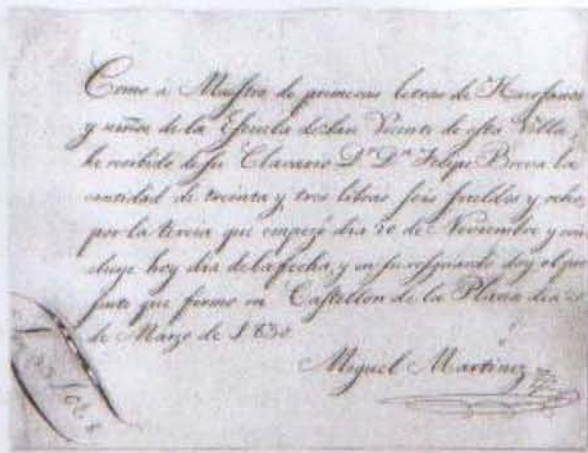 Como á Maestro de primeras letras de Huerfanos
y niños de la Escuela de San Vicente de esta Villa,
he recibido de su Clavario Dn. Dn. Felipe Breva la
cantidad de treinta y tres libras seis sueldos y ocho
por la tercia que empezó dia 20 de Noviembre y con
cluye hoy dia de la fecha, y en su resguardo doy el pre
sente que firmo en Castellon de la Plana dia
de Marzo de 1830
Miguel Martinez